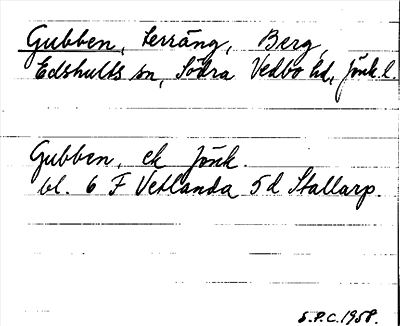 Gubben, terräng, Berg,
Edshults sn, Södra Vedbo hd, Jönk. l.
Gubben, ek Jönk.
bl. 6 F Vetlanda 5 d Stallarp.
S.P.C. 1958.